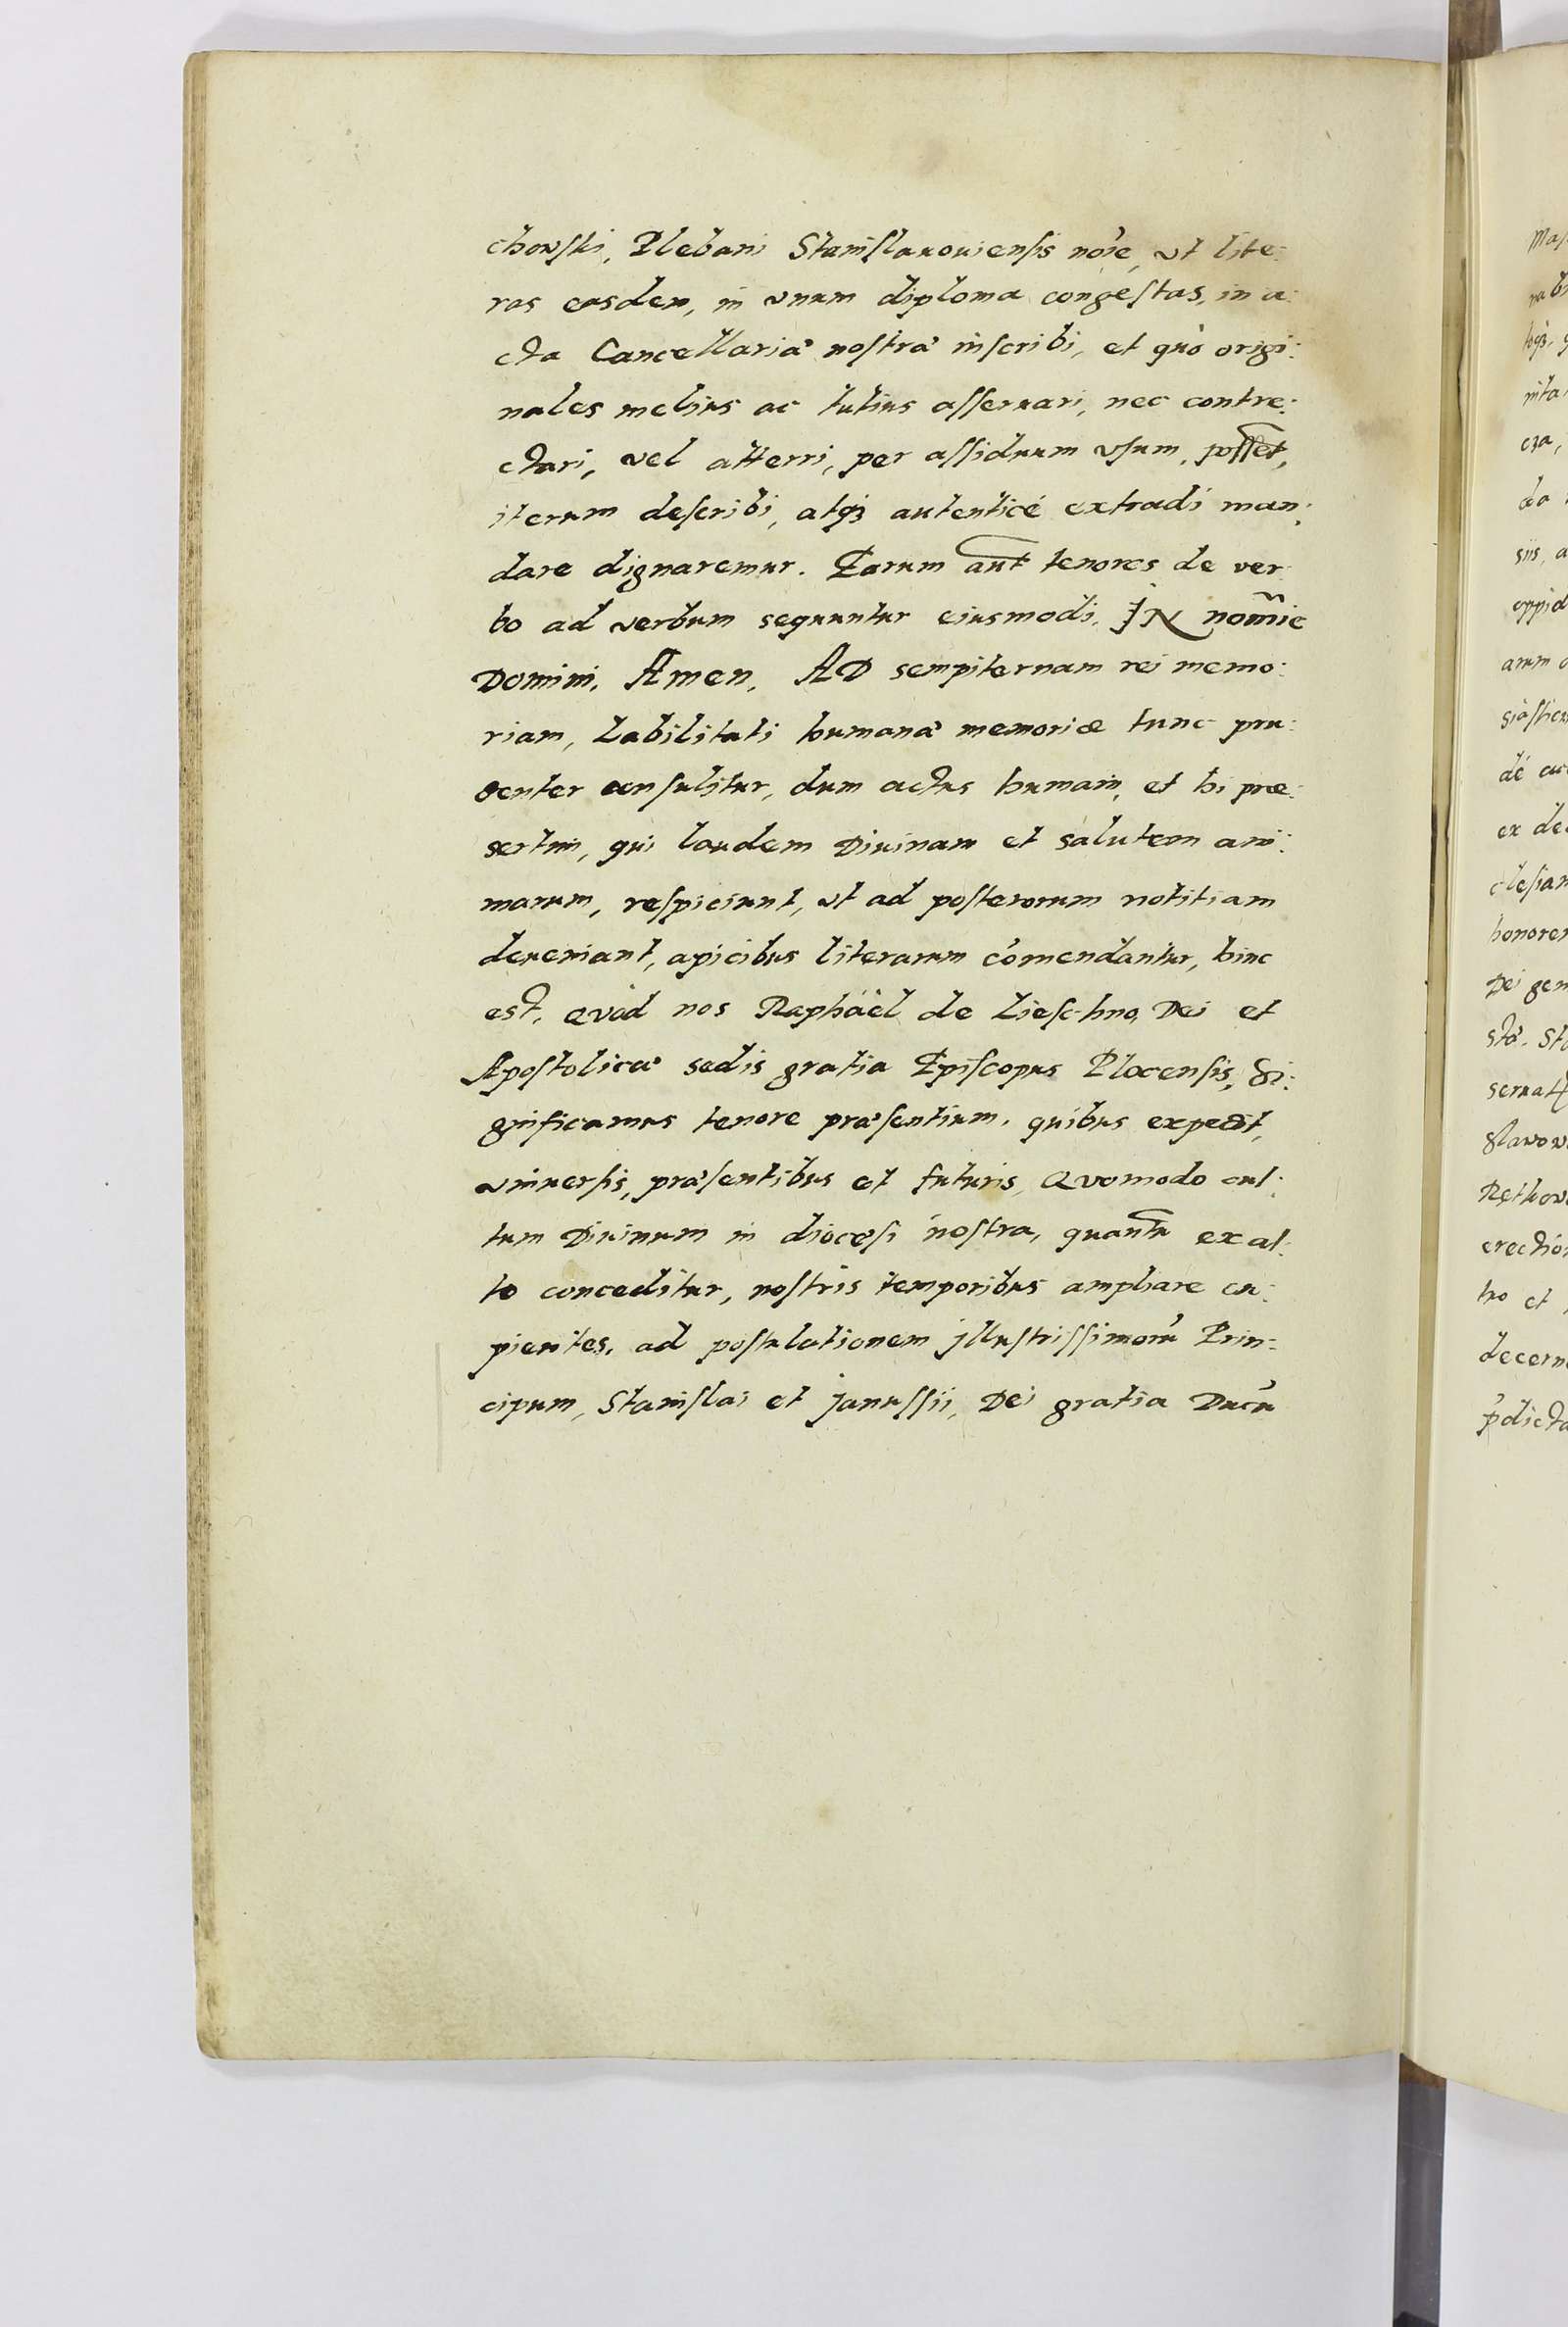 chowski, Plebani Stanislauouiensis nōīe, vt lite:
ras easdem, in vnum diploma congestas, in a:
cta Cancellariæ nostræ inscribi, et quò origi:
nales melius ac tutius asseruari, nec contre:
ctari, vel atteri, per assiduum vsum, possēt,
iterum describi, atqꝫ autenticé extradi man:
dare dignaremur. Earum aūt tenores de ver:
bo ad verbum sequuntur eiusmodi. IN nomīe
Domini. Amen. AD sempiternam rei memo:
riam, Labilitati humanæ memoriæ tunc pru:
denter consulitur, dum actus humani, et hi præ:
sertim, qui laudem Diuinam et salutem ani:
marum, respiciunt, vt ad posterorum notitiam
deueniant, apicibus literarum cōmendantur, hinc
est. Qvòd nos Raphäel de Lieschno, Dei et
Apostolicæ sedis gratia Episcopus Plocensis, Si:
gnificamus tenore præsentium, quibus expedit,
vniuersis, præsentibus et futuris, Qvomodo cul:
tum Diuinum in diocæsi nostra, quantū ex al:
to conceditur, nostris temporibus ampliare cu:
pientes, ad postulationem jllustrissimorū Prin:
cipum, Stanislai et Janussii, Dei gratia Ducū